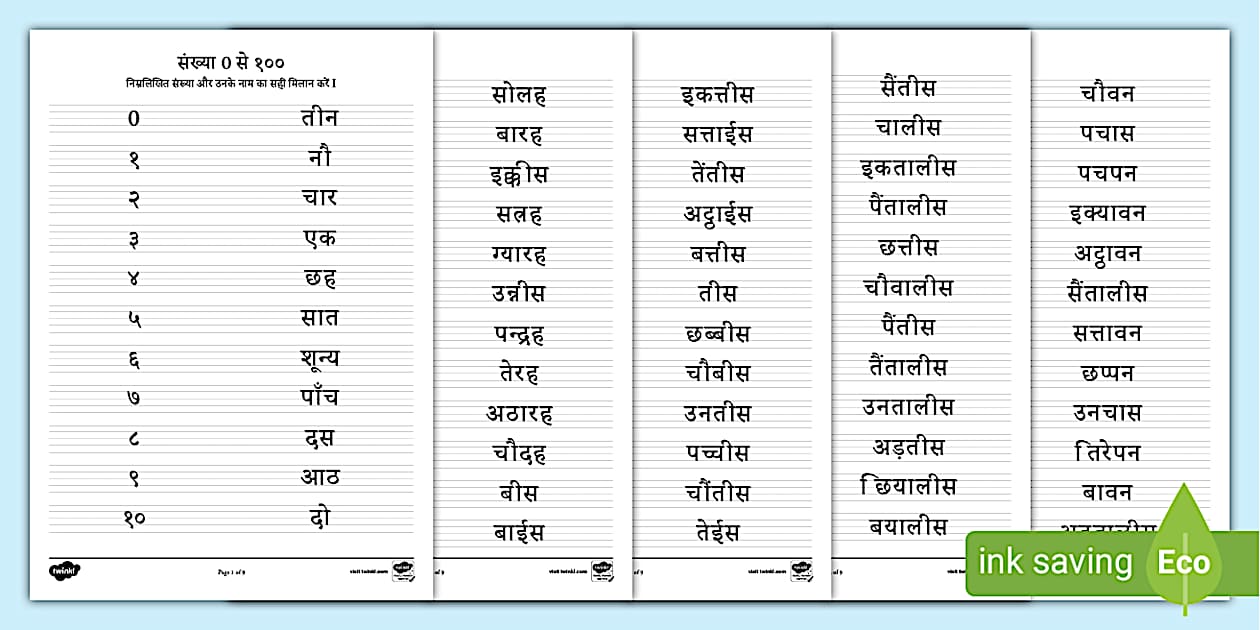 संख्या 0 से १००
निम्नलिखित संख्या और उनके नाम का सही मिलान करें I
0 तीन
१ नौ
२ चार
३ एक
४ छह
५ सात
६ शून्य
७ पाँच
८ दस
९ आठ
१० दो
twinkl
Page 1 of 9
visit twinkl.com
सोलह
बारह
इक्कीस
सत्रह
ग्यारह
उन्नीस
पन्द्रह
तेरह
अठारह
चौदह
बीस
बाईस
of 9
visit twinkl.com
इकत्तीस
सत्ताईस
तेंतीस
अट्ठाईस
बत्तीस
तीस
छब्बीस
चौबीस
उनतीस
पच्चीस
चौंतीस
तेईस
of 9
visit twinkl.com
सैंतीस
चालीस
इकतालीस
पैंतालीस
छत्तीस
चौवालीस
पैंतीस
तैंतालीस
उनतालीस
अड़तीस
छियालीस
बयालीस
of 9
visit tw
चौवन
पचास
पचपन
इक्यावन
अट्ठावन
सैंतालीस
सत्तावन
छप्पन
उनचास
तिरेपन
बावन
ink saving Eco